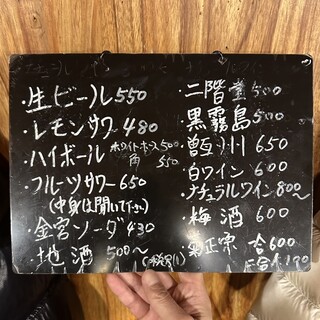 ・生ビール 550
・レモンサワー 480
・ハイボール ホワイトホース 500
角 550
・フルーツサワー 650
(中身は聞いて下さい)
・金宮ソーダ 430
・地酒 500〜
・二階堂 500
・黒霧島 500
・白ワイン 600
・ナチュラルワイン 800〜
・梅酒 600
・菊正宗 一合 600